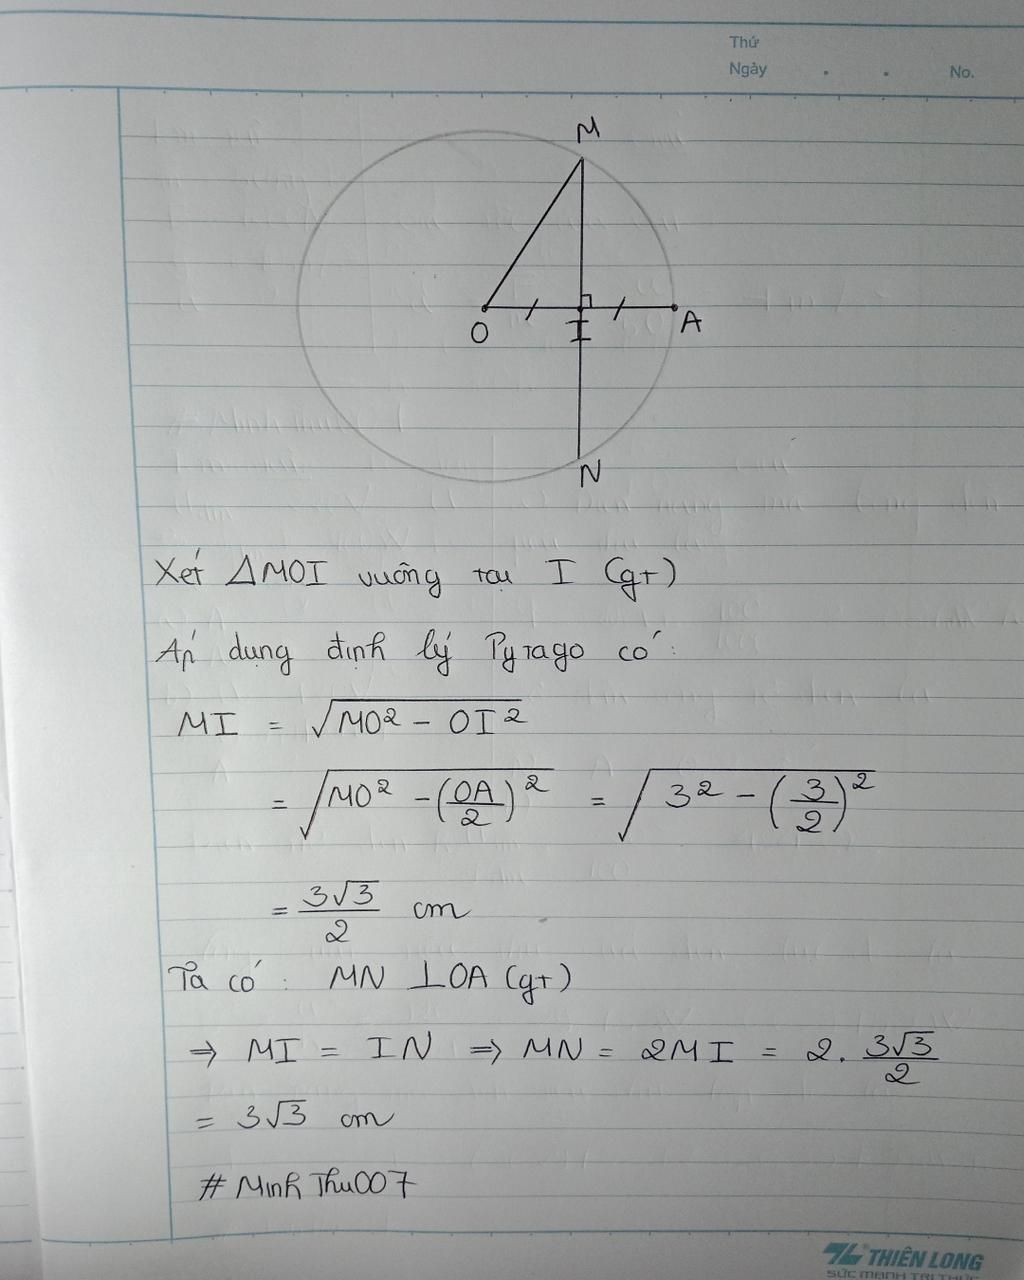 Thứ
Ngày . . No.
M
O I A
N
Xét ΔMOI vuông tại I (gt)
Áp dụng định lý Pytago có:
MI = √(MO² - OI²)
= √(MO² - (OA/2)²) = √(3² - (3/2)²)
= 3√3/2 cm
Ta có: MN ⊥ OA (gt)
⇒ MI = IN ⇒ MN = 2MI = 2. 3√3/2
= 3√3 cm
# Minh Thu007
TL THIÊN LONG
SỨC MẠNH TRI THỨC